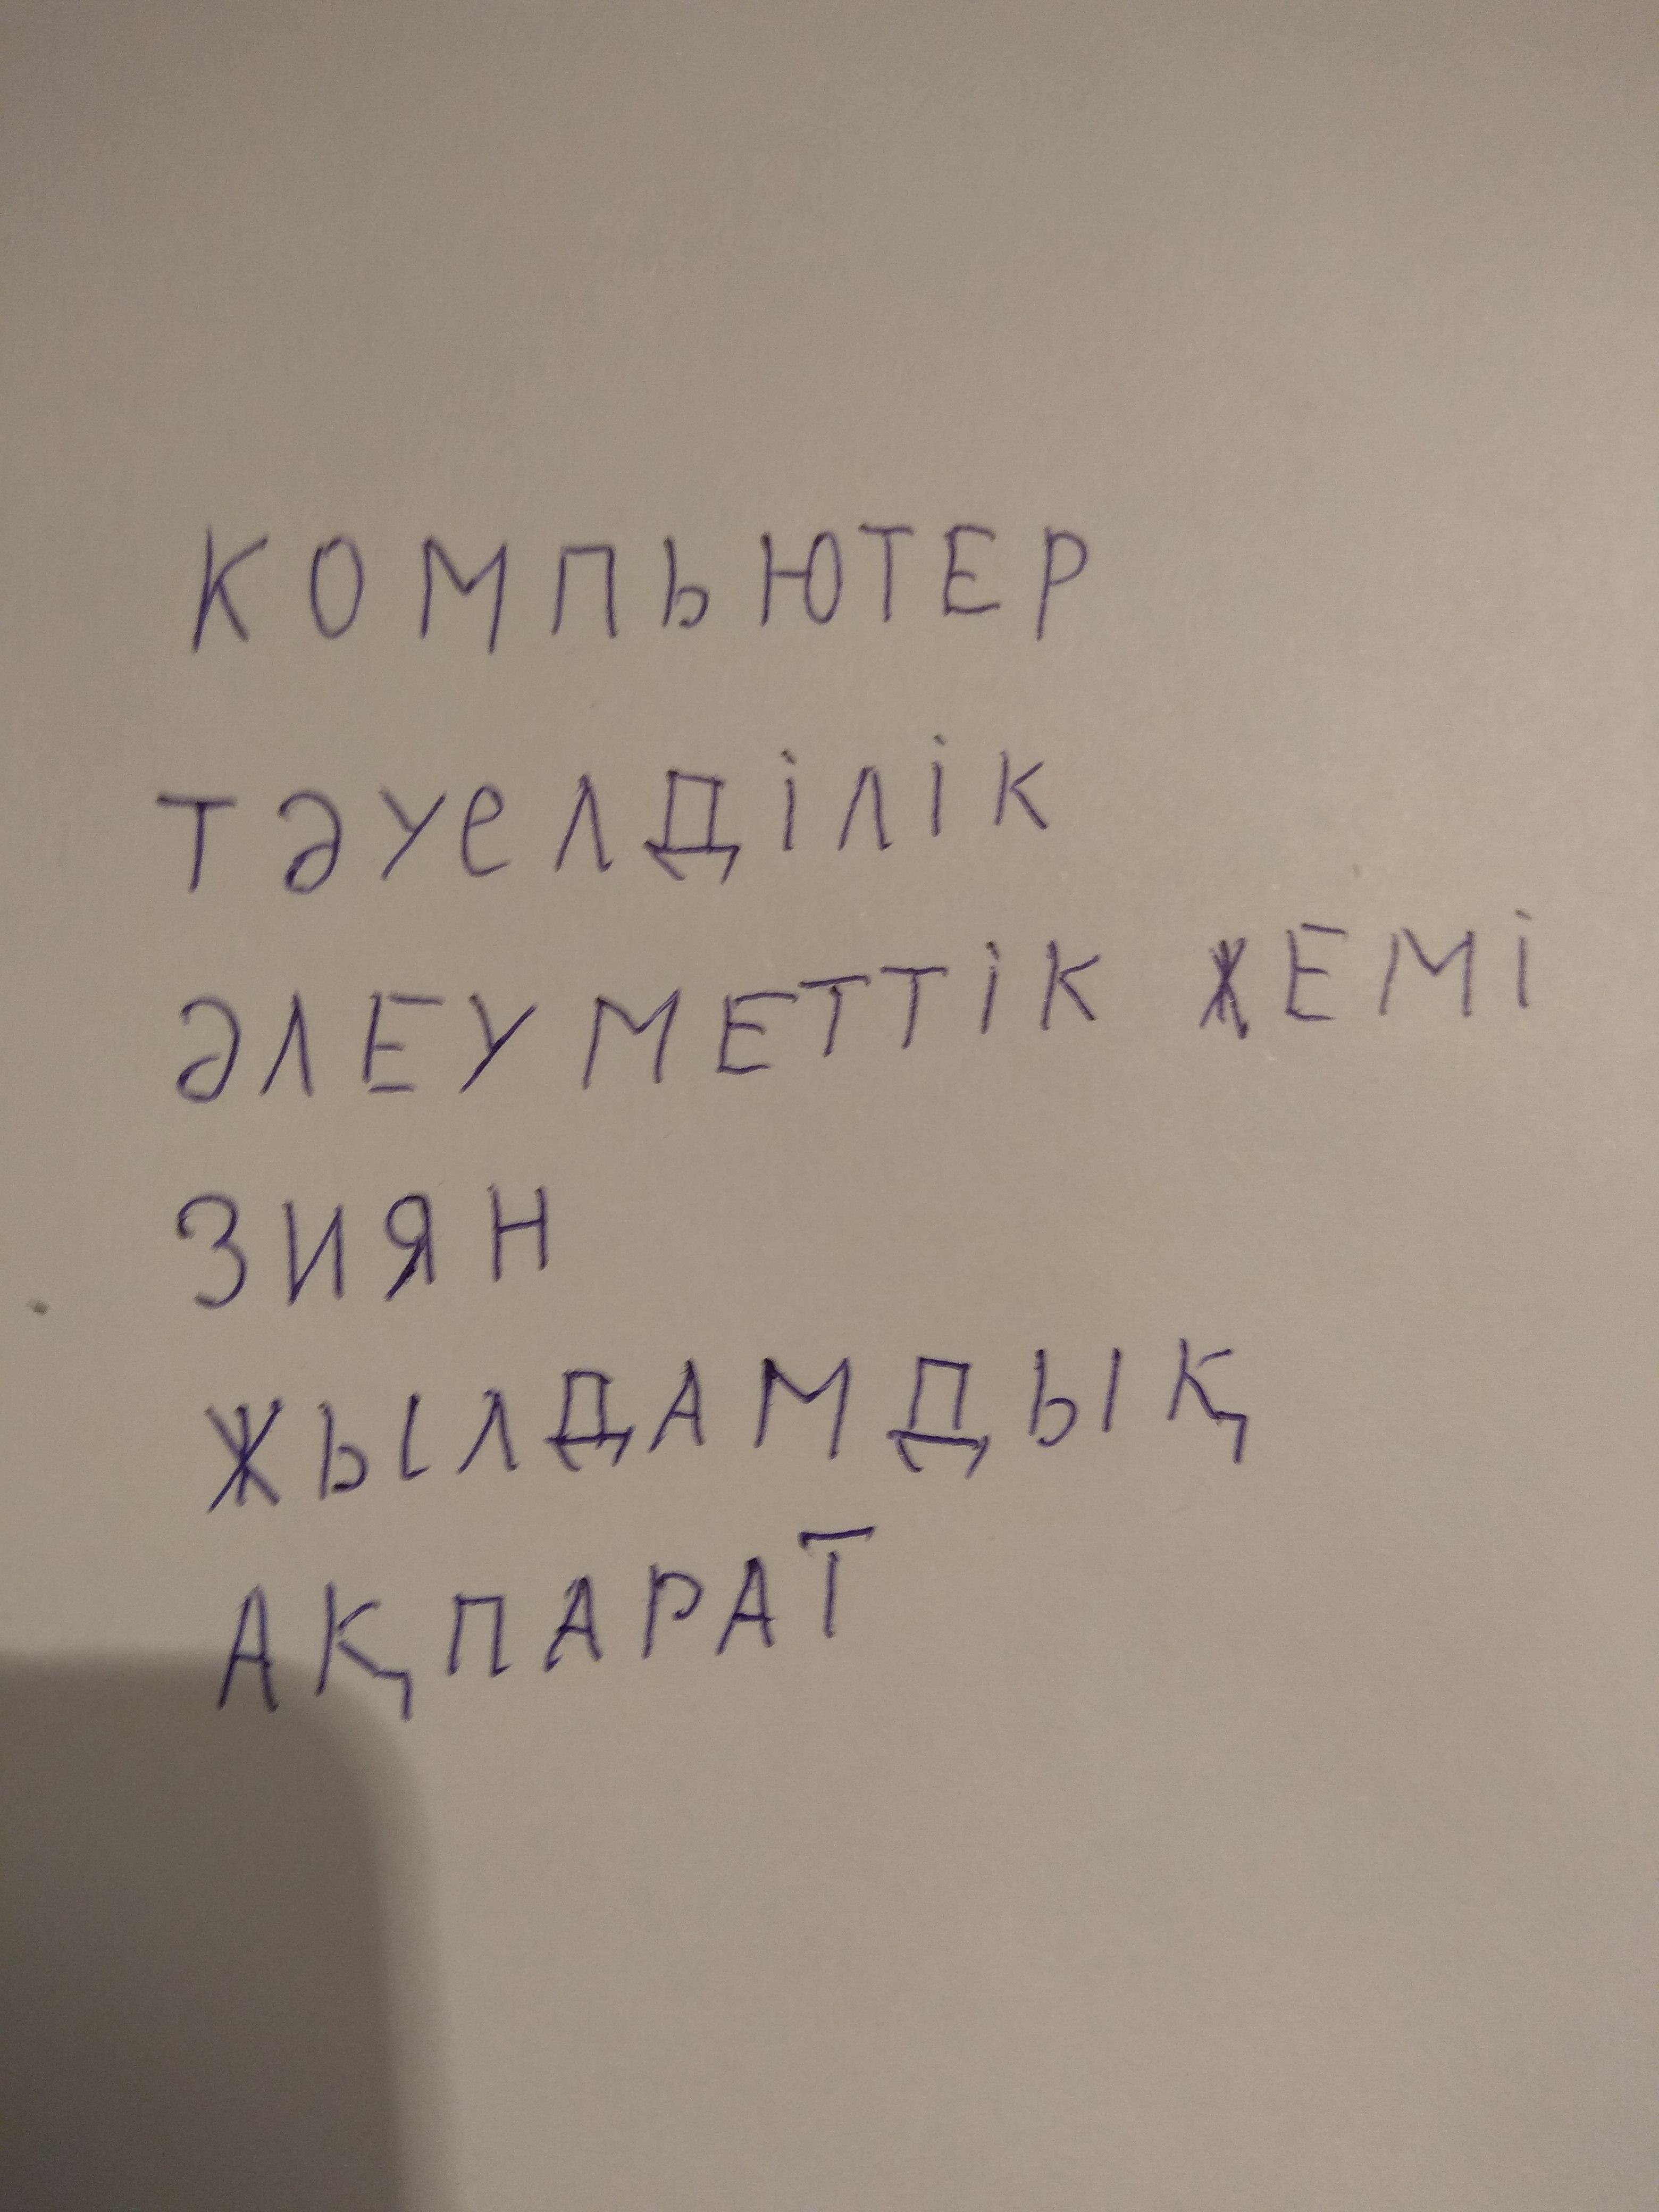 КОМПЬЮТЕР
ТӘУеЛДіЛіК
ӘЛЕУМЕТТіК ЖЕМі
ЗИЯН
ЖЫЛДАМДЫҚ
АҚПАРАТ